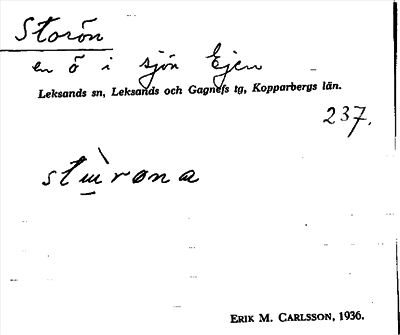 Storön
en ö i sjön Ejen
Leksands sn, Leksands och Gagnefs tg, Kopparbergs län.
237.
ERIK M. CARLSSON, 1936.